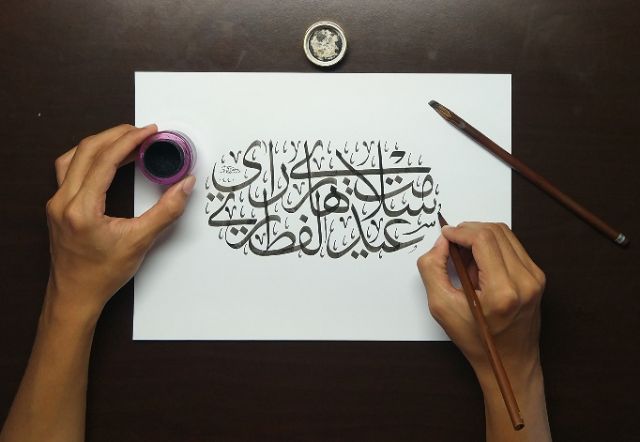 سلامت هاري راي
عيد الفطري